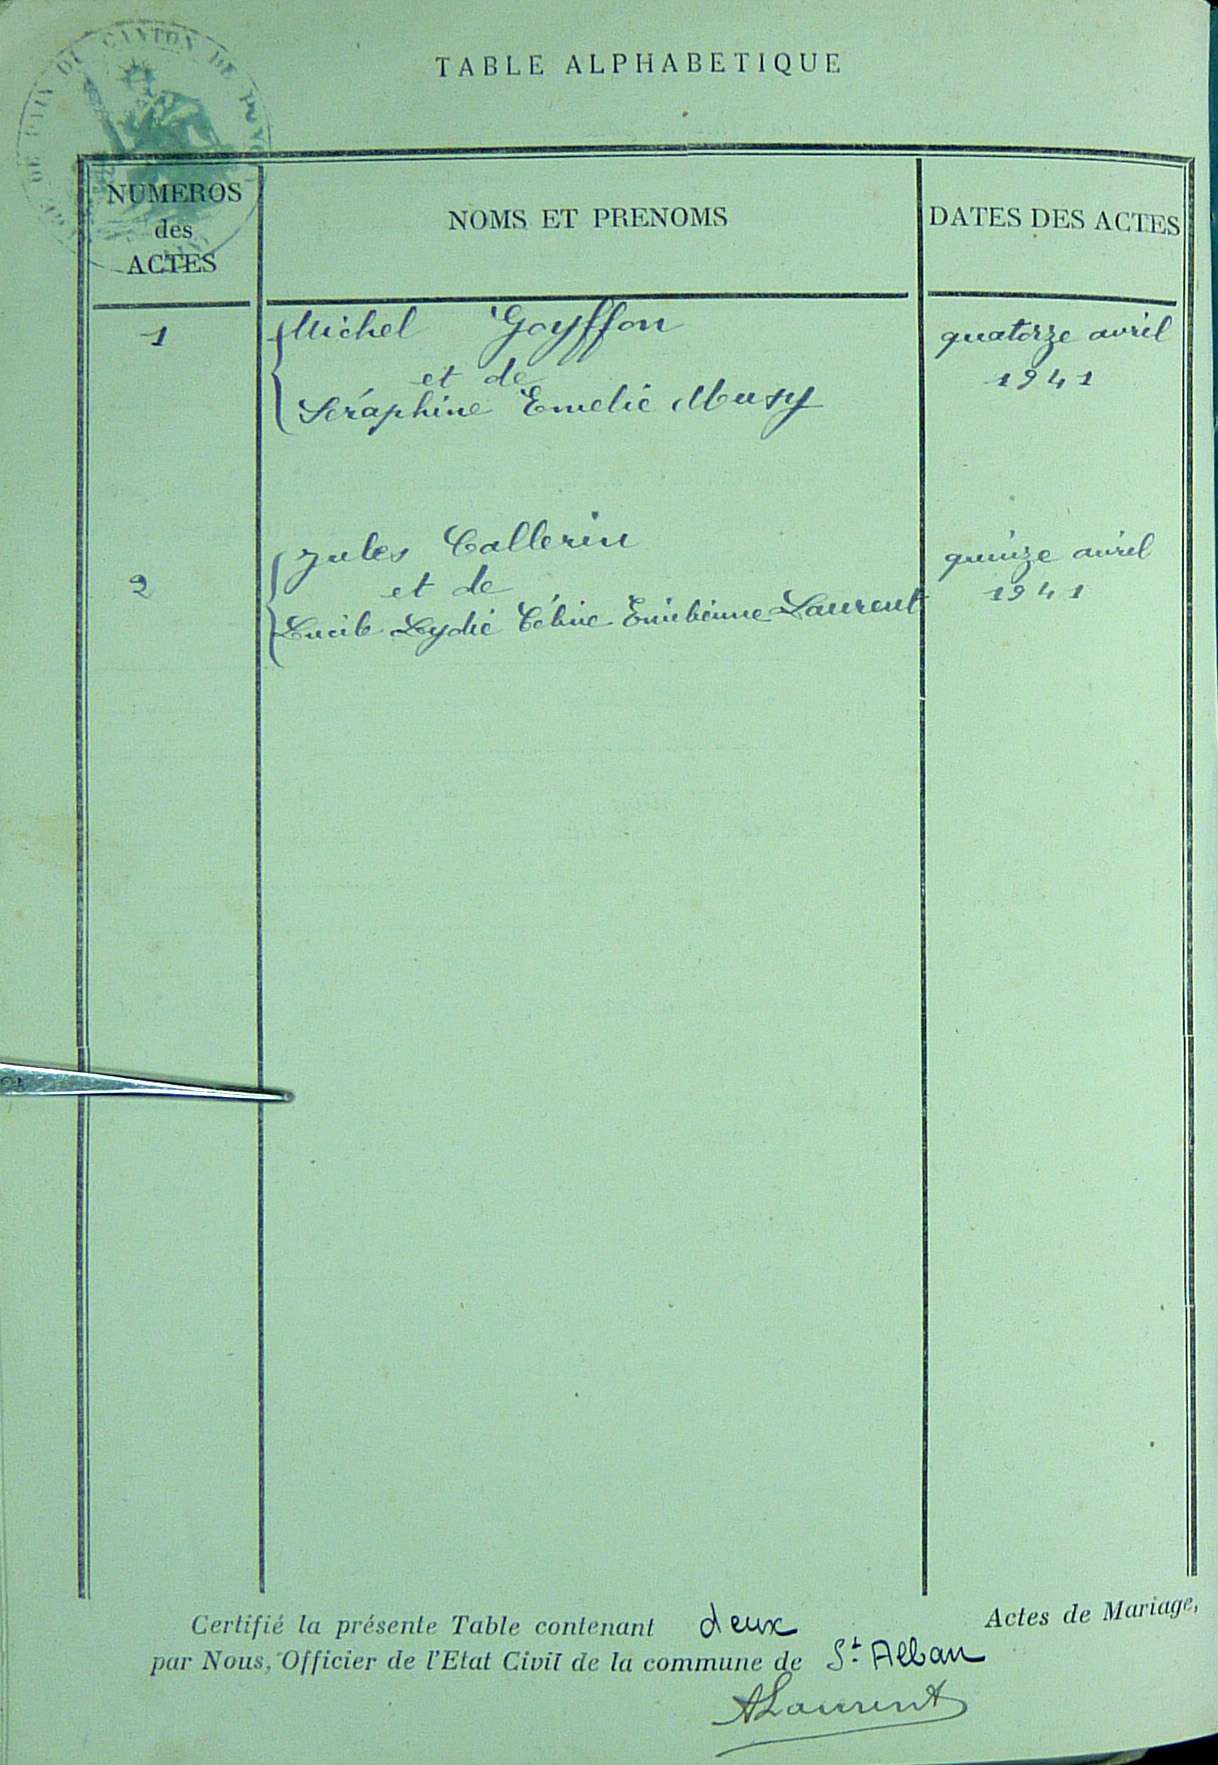 DE PAIX DU CANTON DE P
TABLE ALPHABETIQUE
NUMEROS
des
ACTES
NOMS ET PRENOMS
DATES DES ACTES
1
Michel Goyffon
et de
Séraphine Emelie Musy
quatorze avril
1941
2
Jules Callerin
et de
Lucile Lydie Céline Emilienne Laurent
quinze avril
1941
Certifié la présente Table contenant deux Actes de Mariage,
par Nous, Officier de l'Etat Civil de la commune de St Alban
ALaurent